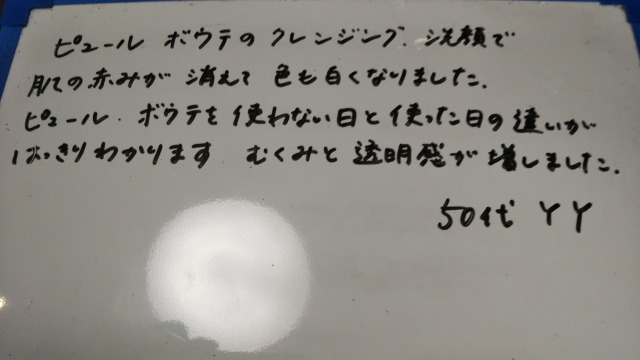 ピュール ボウテの クレンジング、洗顔で
肌の赤みが 消えて 色も白くなりました.
ピュール・ボウテを使わない日と使った日の違いが
はっきりわかります むくみと透明感が増しました.
50代 YY